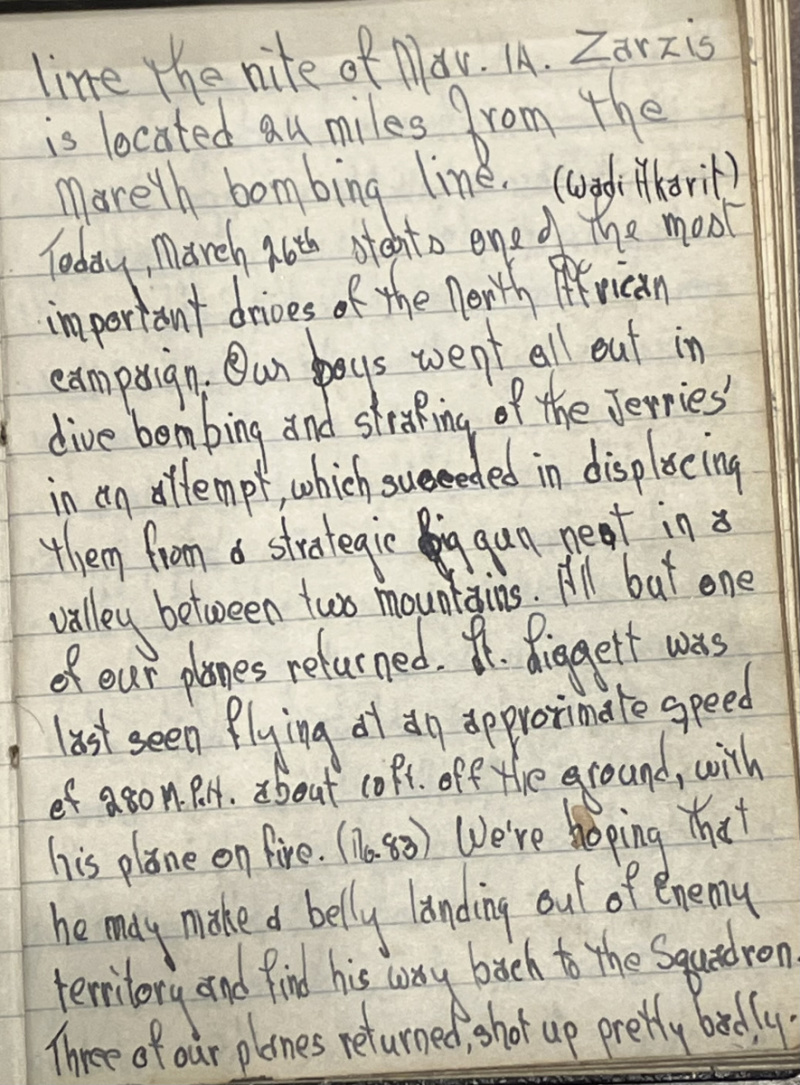 line the nite of Mar. 14. Zarzis
is located 24 miles from the
Mareth bombing line. (Wadi Akarit)
Today, March 26th starts one of the most
important drives of the North African
campaign. Our boys went all out in
dive bombing and strafing of the Jerries'
in an attempt, which succeeded in displacing
them from a strategic big gun nest in a
valley between two mountains. All but one
of our planes returned. Lt. Liggett was
last seen flying at an approximate speed
of 280 M.P.H. about 10 ft. off the ground, with
his plane on fire. (No. 83) We're hoping that
he may make a belly landing out of enemy
territory and find his way back to the Squadron.
Three of our planes returned, shot up pretty badly.